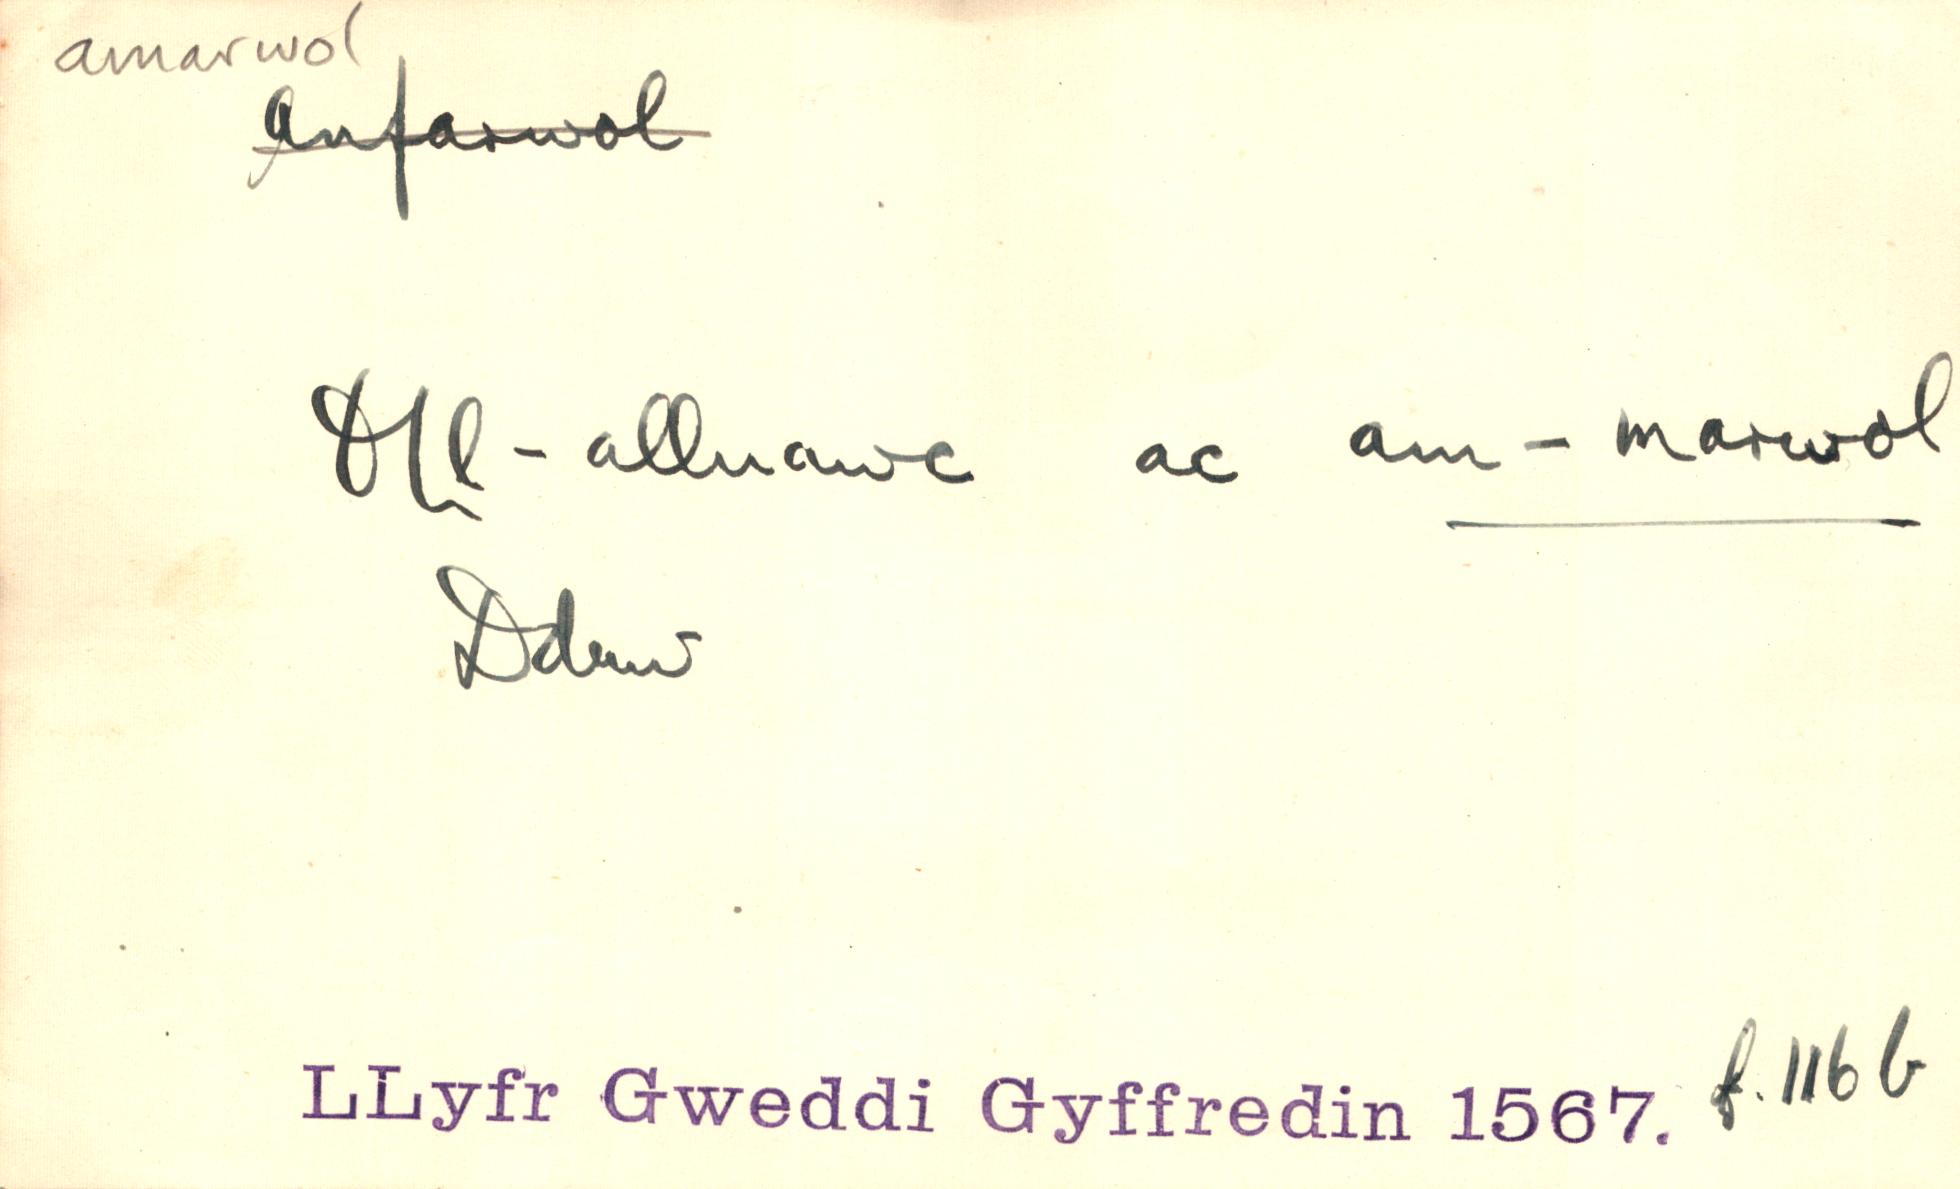 amarwol
anfarwol
Oll-alluawc ac am-marwol
Dduw
LLyfr Gweddi Gyffredin 1567. f. 116 b